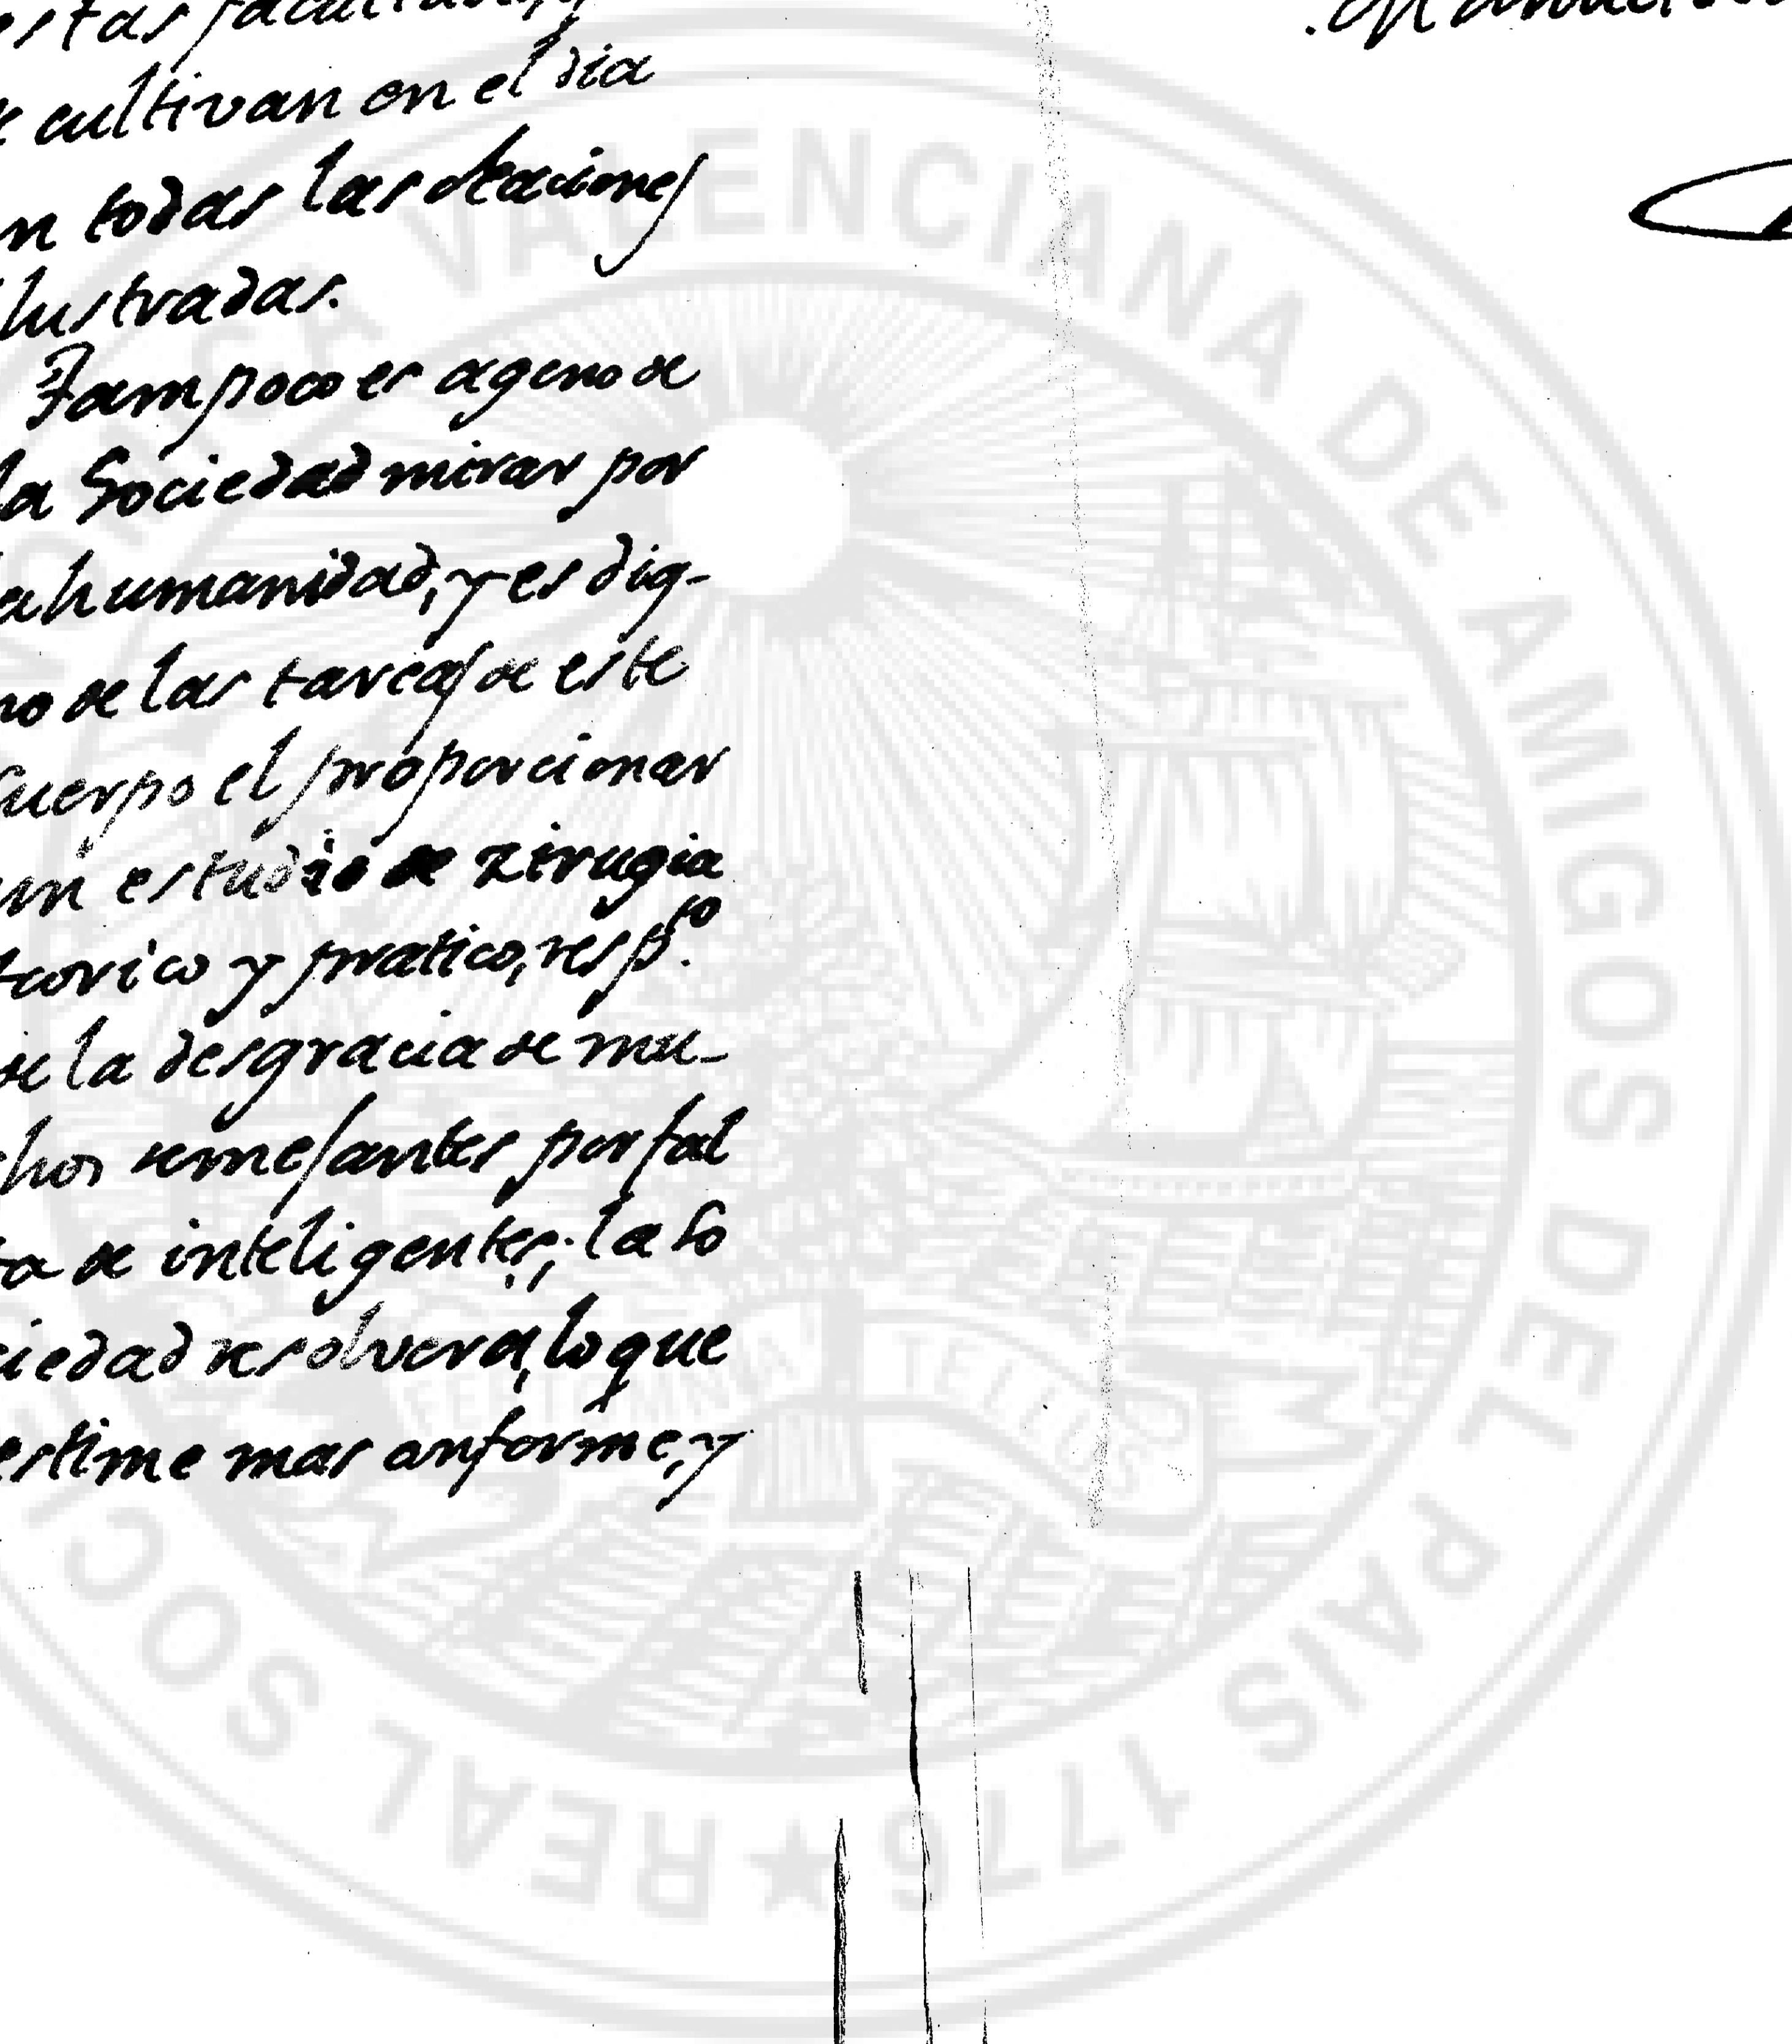 estas facultades, y
se cultivan en el dia
en todas las Naciones
ilustradas.
Tampoco es ageno de
la Sociedad mirar por
la humanidad, y es dig-
no de las tareas de este
Cuerpo el proporcionar
un estudio de Zirugia
teorico y pratico, resp.to
de la desgracia de mu-
chos semejantes por fal
ta de inteligentes; la So
ciedad resolvera, lo que
estime mas conforme, y
REAL SOC VALENCIANA DE AMIGOS DEL PAIS 1776